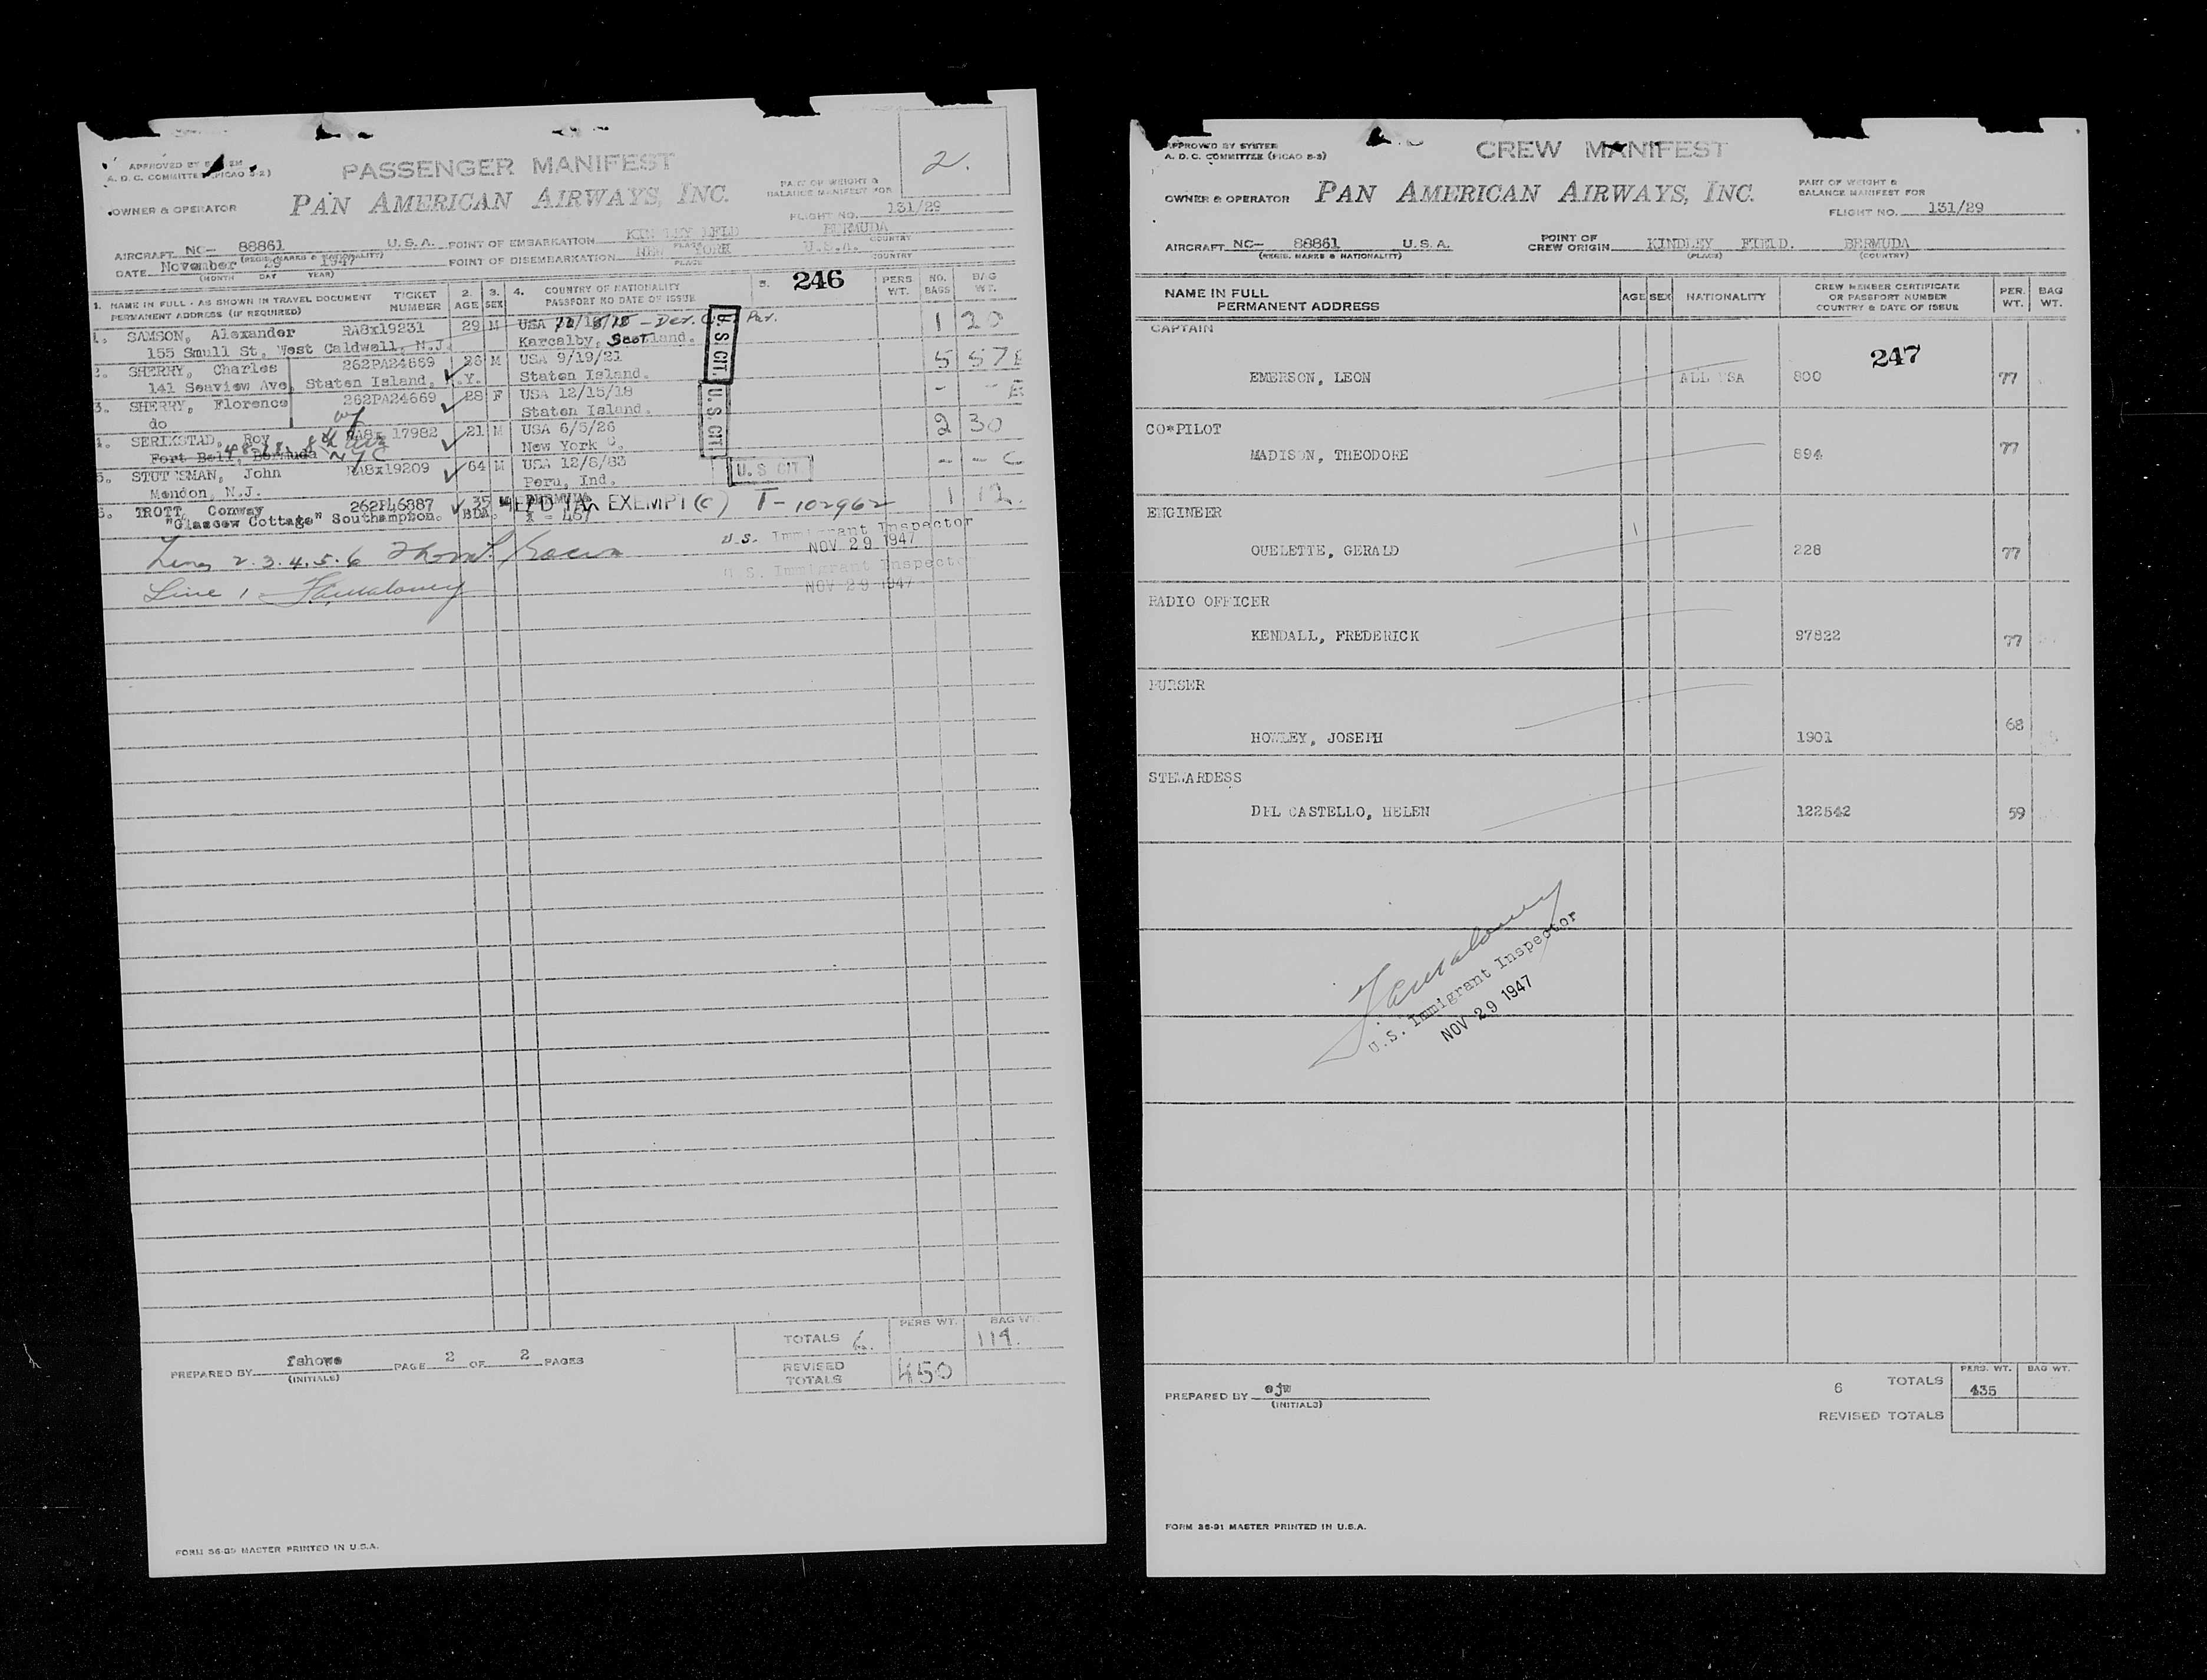 2.
APPROVED BY
A. D. C. COMMITTEE (PICAO S-2)
PASSENGER MANIFEST
OWNER & OPERATOR
PAN AMERICAN AIRWAYS, INC.
PART OF WEIGHT &
BALANCE MANIFEST FOR
FLIGHT NO. 131/29
AIRCRAFT NC- 88861 U.S.A.
(REGIS. MARKS & NATIONALITY)
POINT OF EMBARKATION KINDLEY FIELD BERMUDA
PLACE COUNTRY
DATE November 29 1947
(MONTH DAY YEAR)
POINT OF DISEMBARKATION NEW YORK U.S.A.
PLACE COUNTRY
1. NAME IN FULL - AS SHOWN IN TRAVEL DOCUMENT TICKET NUMBER 2. AGE 3. SEX 4. COUNTRY OF NATIONALITY 5. 246 PERS WT. NO. BAGS BAG WT.
PERMANENT ADDRESS (IF REQUIRED) PASSPORT NO DATE OF ISSUE
1. SAMSON, Alexander RA8x19231 29 M USA - Der. Par. 1 20
155 Smull St, West Caldwell, N.J. Karcalby, Scotland. U.S CIT.
2. SHERRY, Charles 262PA24669 26 M USA 9/19/21 5 57
141 Seaview Ave, Staten Island, N.Y. Staten Island.
3. SHERRY, Florence 262PA24669 28 F USA 12/15/18 - -
do Staten Island. U.S CIT.
4. SERIKSTAD, Roy RA8x 17982 21 M USA 6/5/26 2 30
Fort Bell, Bermuda NYC New York C.
5. STUTESMAN, John RA8x19209 64 M USA 12/6/83 - - C
Mendon, N.J. Peru, Ind. U.S CIT.
6. TROTT, Conway 262PL46387 35 M BERMUDA HEAD TAX EXEMPT (c) T-102962 1 12.
"Glasgow Cottage" Southampton. BDA.
Lines 2.3.4.5.6
U.S. Immigrant Inspector
NOV 29 1947
Line 1
U.S. Immigrant Inspector
NOV 29 1947
PERS WT. BAG WT.
TOTALS 6. 119.
REVISED TOTALS 450
PREPARED BY fshowe PAGE 2 OF 2 PAGES
(INITIALS)
FORM 36-85 MASTER PRINTED IN U.S.A.
APPROVED BY SYSTEM
A. D. C. COMMITTEE (PICAO S-3)
CREW MANIFEST
OWNER & OPERATOR
PAN AMERICAN AIRWAYS, INC.
PART OF WEIGHT &
BALANCE MANIFEST FOR
FLIGHT NO. 131/29
AIRCRAFT NC- 88861 U.S.A.
(REGIS. MARKS & NATIONALITY)
POINT OF
CREW ORIGIN KINDLEY FIELD. BERMUDA
(PLACE) (COUNTRY)
NAME IN FULL
PERMANENT ADDRESS
AGE SEX NATIONALITY
CREW MEMBER CERTIFICATE
OR PASSPORT NUMBER
COUNTRY & DATE OF ISSUE
PER. WT. BAG WT.
CAPTAIN
247
EMERSON, LEON ALL USA 800 77
CO*PILOT
MADISON, THEODORE 894 77
ENGINEER
OUELETTE, GERALD 228 77
RADIO OFFICER
KENDALL, FREDERICK 97822 77
PURSER
HOWLEY, JOSEPH 1901 68
STEWARDESS
DEL CASTELLO, HELEN 122542 59
U.S. Immigrant Inspector
NOV 29 1947
PERS. WT. BAG WT.
6 TOTALS 435
REVISED TOTALS
PREPARED BY ejw
(INITIALS)
FORM 36-91 MASTER PRINTED IN U.S.A.